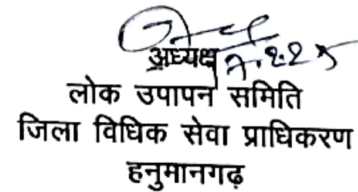 अध्यक्ष
लोक उपापन समिति
जिला विधिक सेवा प्राधिकरण
हनुमानगढ़